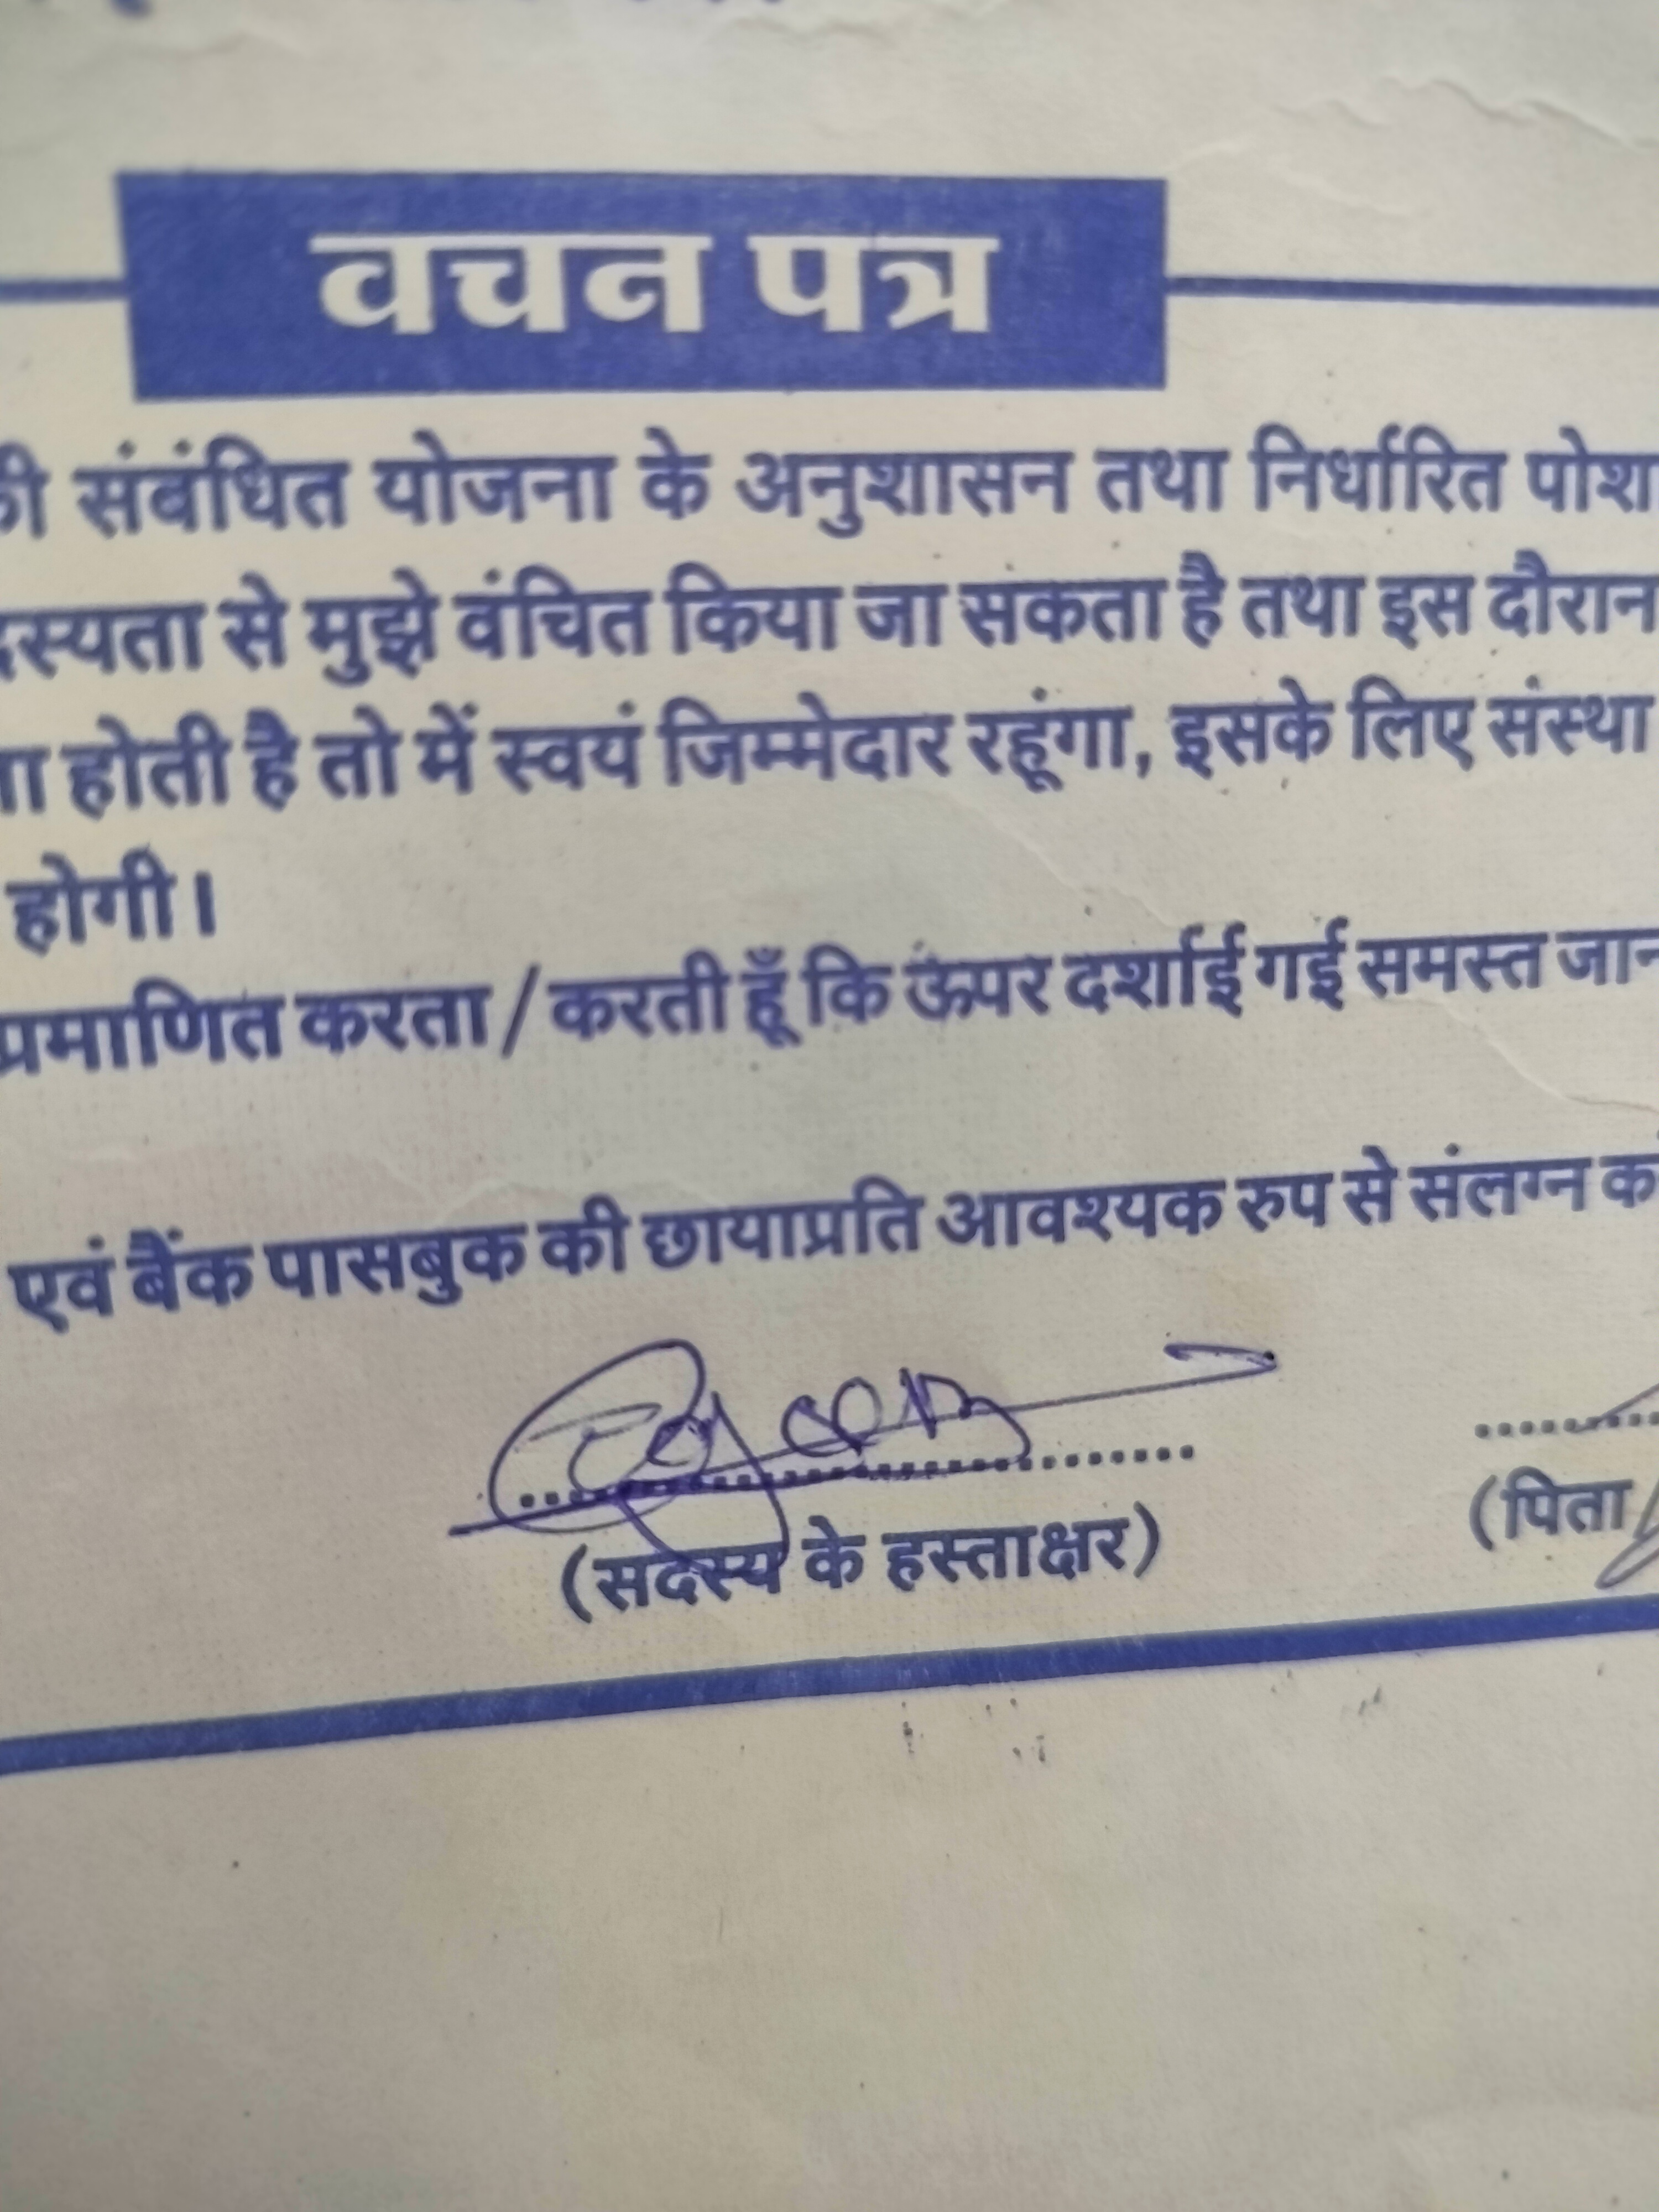 वचन पत्र
की संबंधित योजना के अनुशासन तथा निर्धारित पोश
दस्यता से मुझे वंचित किया जा सकता है तथा इस दौरान
होती है तो में स्वयं जिम्मेदार रहूंगा, इसके लिए संस्था
होगी।
प्रमाणित करता / करती हूँ कि ऊपर दर्शाई गई समस्त जान
एवं बैंक पासबुक की छायाप्रति आवश्यक रुप से संलग्न
(सदस्य के हस्ताक्षर)
(पिता